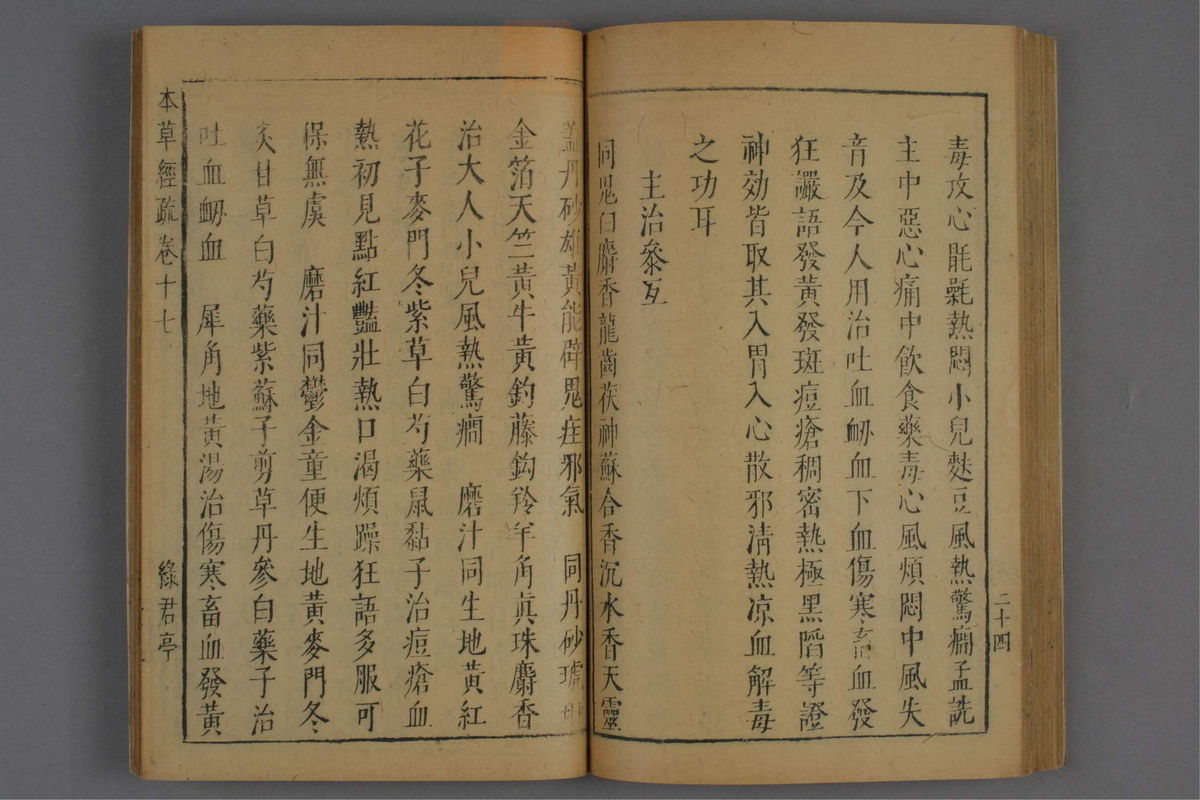 二十四
毒攻心毷氉熱悶小兒麩豆風熱驚癇孟詵
主中惡心痛中飲食藥毒心風煩悶中風失
音及今人用治吐血衂血下血傷寒畜血發
狂讝語發黃發斑痘瘡稠密熱極黑陷等證
神効皆取其入胃入心散邪清熱凉血解毒
之功耳
主治參互
同鬼臼麝香龍齒茯神蘇合香沉水香天靈
蓋丹砂雄黃能辟鬼疰邪氣　同丹砂琥珀
金箔天竺黃牛黃鈎藤鈎羚羊角眞珠麝香
治大人小兒風熱驚癇　磨汁同生地黃紅
花子麥門冬紫草白芍藥鼠黏子治痘瘡血
熱初見點紅豔壯熱口渴煩躁狂語多服可
保無虞　磨汁同鬱金童便生地黃麥門冬
炙甘草白芍藥紫蘇子剪草丹參白藥子治
吐血衂血　犀角地黃湯治傷寒畜血發黃
本草經疏卷十七　綠君亭